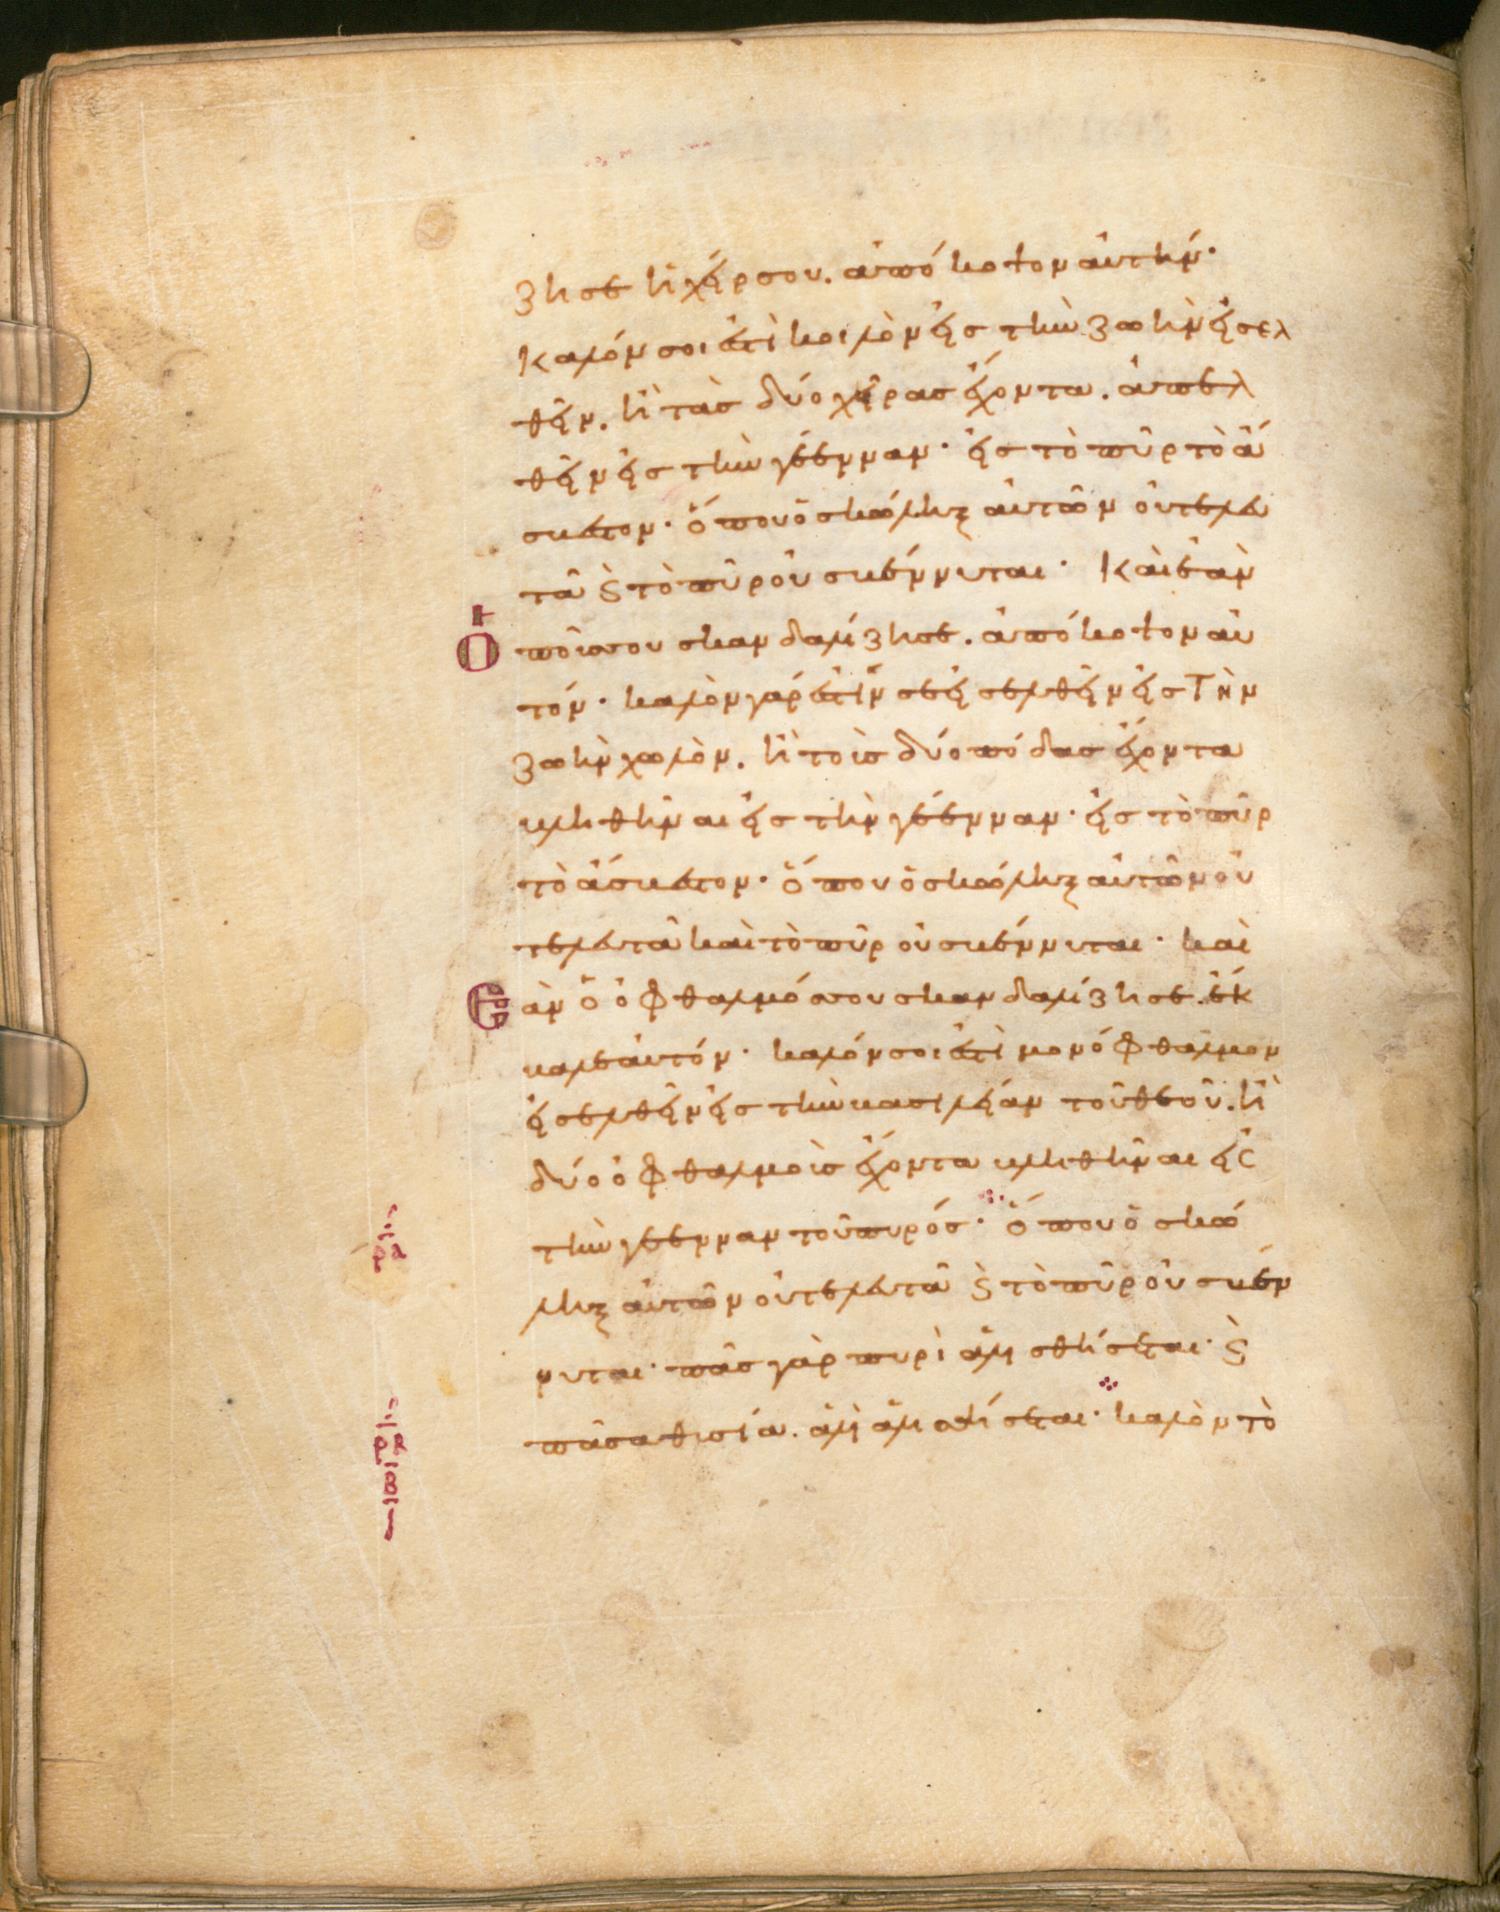 ζησε ἡ χείρ σου. ἀπόκοψον αὐτήν·
καλόν σοι ἐστὶ κοιλὸν εἰς τὴν ζωὴν εἰσελ
θεῖν. ἢ τὰς δύο χεῖρας ἔχοντα. ἀπελ
θεῖν εἰς τὴν γέενναν· εἰς τὸ πῦρ τὸ ἄ
σβεστον· ὅπου ὁ σκώληξ αὐτῶν οὐ τελευ
τᾶ ϗ τὸ πῦρ οὐ σβέννυται· Καὶ ἐὰν
ὁ ποῦς σου σκανδαλίζησε. ἀπόκοψον αὐ
τόν· καλὸν γάρ ἐστίν σε εἰσελθεῖν εἰς Τὴν
ζωὴν χωλὸν. ἢ τοὶς δύο πόδας ἔχοντα
βληθῆναι εἰς τὴν γέενναν· εἰς τὸ πῦρ
τὸ ἄσβεστον· ὅπου ὁ σκώληξ αὐτῶν οὐ
τελευτᾶ καὶ τὸ πῦρ οὐ σβέννυται· καὶ
Ἐὰν ὁ ὀφθαλμός σου σκανδαλίζησε. ἔκ
βαλε αὐτόν· καλόν σοι ἐστὶ μονόφθαλμον
εἰσελθεῖν εἰς τὴν βασιλείαν τοῦ θεοῦ. ἢ
δύο ὀφθαλμοὶς ἔχοντα βληθῆναι εἰς
τὴν γέενναν τοῦ πυρός· ὅπου ὁ σκώ
ληξ αὐτῶν οὐ τελευτᾶ ϗ τὸ πῦρ οὐ σβέν
νυται· πᾶς γὰρ πυρὶ ἁλησθήσεται· ϗ
πᾶσα θυσία. ἁλὴ ἁλισθήσεται· καλὸν τὸ